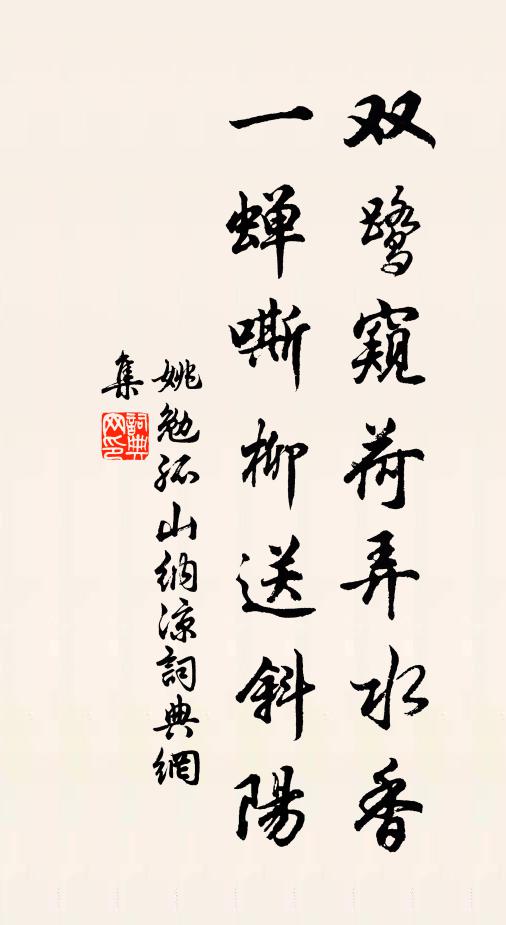 双鹭窥荷弄水香
一蝉嘶柳送斜陽
姚勉孤山纳凉詞典網
集
詞典
网印